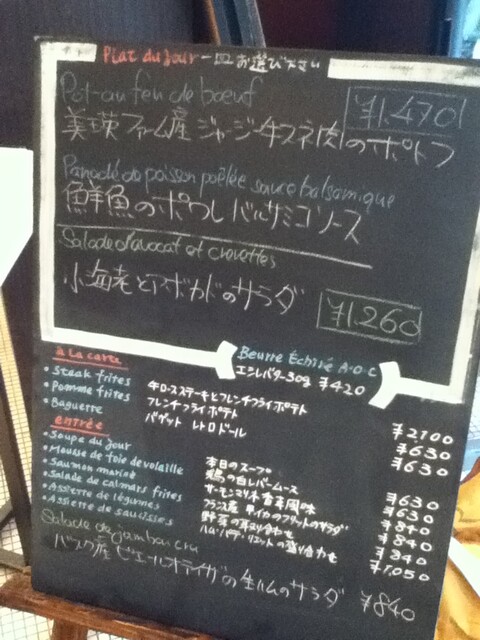 Plat du Jour 一皿お選び下さい
Pot-au feu de boeuf
¥1.470
美瑛ファーム産ジャージー牛スネ肉のポトフ
Panaché de poisson poêlée sauce balsamique
鮮魚のポワレ バルサミコソース
Salade d'avocat et crevettes
小海老とアボカドのサラダ
¥1.260
à la carte
Beurre Échiré A.O.C
エシレバター30g ¥420
• Steak frites 牛ロースステーキとフレンチフライポテト ¥2100
• Pomme frites フレンチフライポテト ¥630
• Baguerre バゲット レトロドール ¥630
entrée
• Soupe du jour 本日のスープ ¥630
• Mousse de foie de volaille 鶏の白レバームース ¥630
• Saumon mariné サーモンマリネ 香草風味 ¥840
• Salade de calmars frites フランス産 イカのフリットのサラダ ¥840
• Assiette de légumes 野菜の盛り合わせ ¥840
• Assiette de saucisses ハム・パテ・リエットの盛り合わせ ¥1,050
Salade de jambon cru
バスク産 ピエールオテイザの生ハムのサラダ ¥840